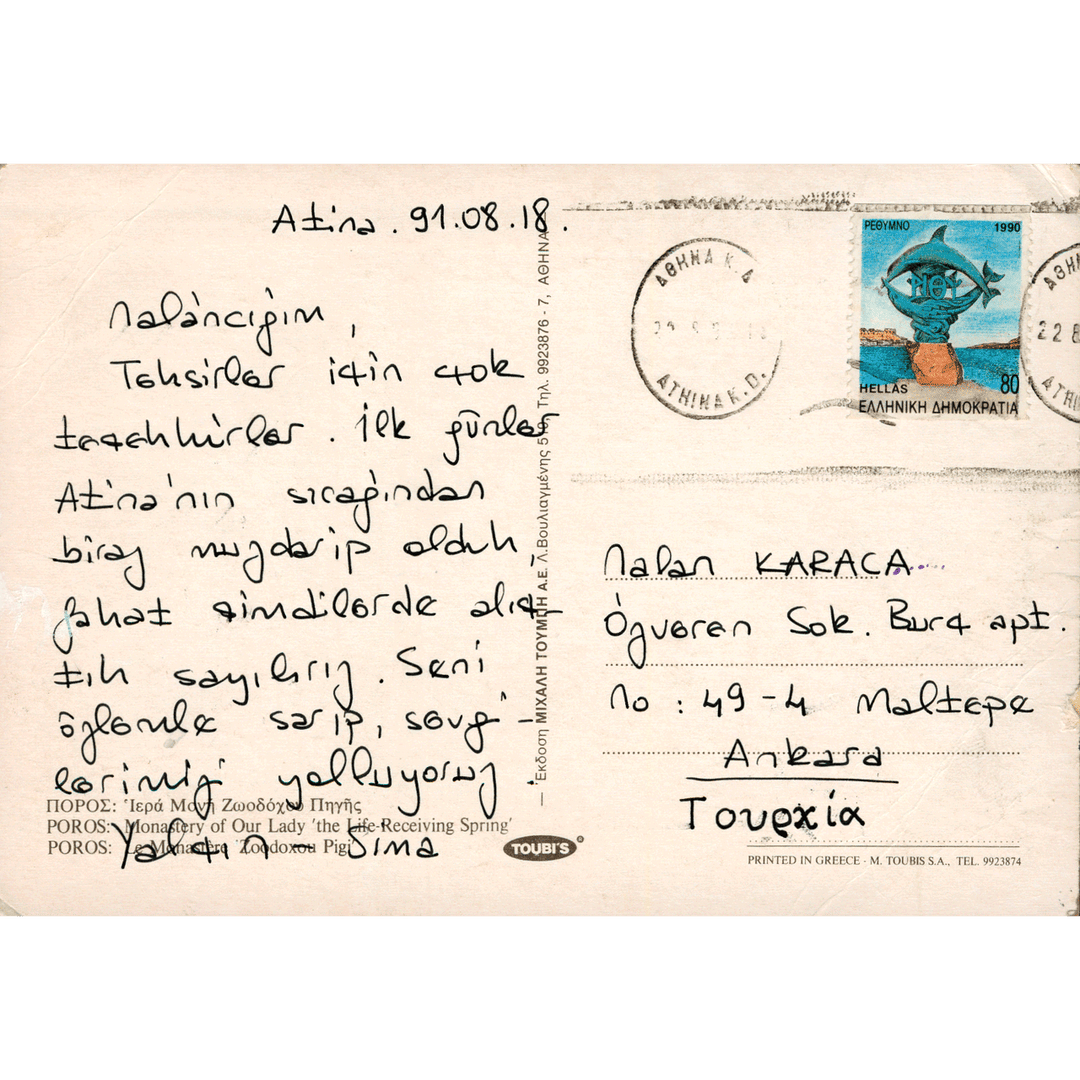 Atina. 91.08.18.
Nalâncığım,
Teksirler için çok
teşekkürler. İlk günler
Atina'nın sıcağından
biraz muzdarip olduk,
fakat şimdilerde alış-
tık sayılırız. Seni
özlemle sarıp, sevgi-
lerimizi yolluyoruz.
Yalçın - Sima
ΠΟΡΟΣ: Ἱερά Μονή Ζωοδόχου Πηγῆς
POROS: Monastery of Our Lady 'the Life-Receiving Spring'
POROS: Le Monastère 'Zoodoxou Pigi'
TOUBI'S®
— Ἔκδοση ΜΙΧΑΛΗ ΤΟΥΜΠΗ Α.Ε. Λ.Βουλιαγμένης 519, Τηλ. 9923876 - 7, ΑΘΗΝΑ
ΑΘΗΝΑ Κ.Δ
ATHINA K.D.
ΡΕΘΥΜΝΟ 1990
HELLAS 80
ΕΛΛΗΝΙΚΗ ΔΗΜΟΚΡΑΤΙΑ
ΑΘΗΝ
22 8
ATHI
Nalan KARACA
Ögveren Sok. Burç apt.
No : 49-4 Maltepe
Ankara
Τουρχία
PRINTED IN GREECE - M. TOUBIS S.A., TEL. 9923874